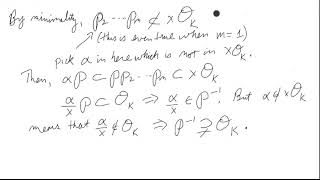 By minimality, p₂ ⋯ pₙ ⊄ x𝒪_K.
(this is even true when m = 1)
pick α in here which is not in x𝒪_K.
Then, αp ⊂ pp₂ ⋯ pₙ ⊂ x𝒪_K
α/x p ⊂ 𝒪_K ⇒ α/x ∈ p⁻¹. But α ∉ x𝒪_K
means that α/x ∉ 𝒪_K ⇒ p⁻¹ ⊋ 𝒪_K.